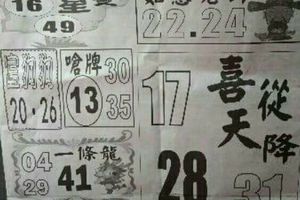 16 星
49
22.24
皇
20.26
嗆牌 30
13 35
17
喜從
天降
04 一條龍
29 41
28
31